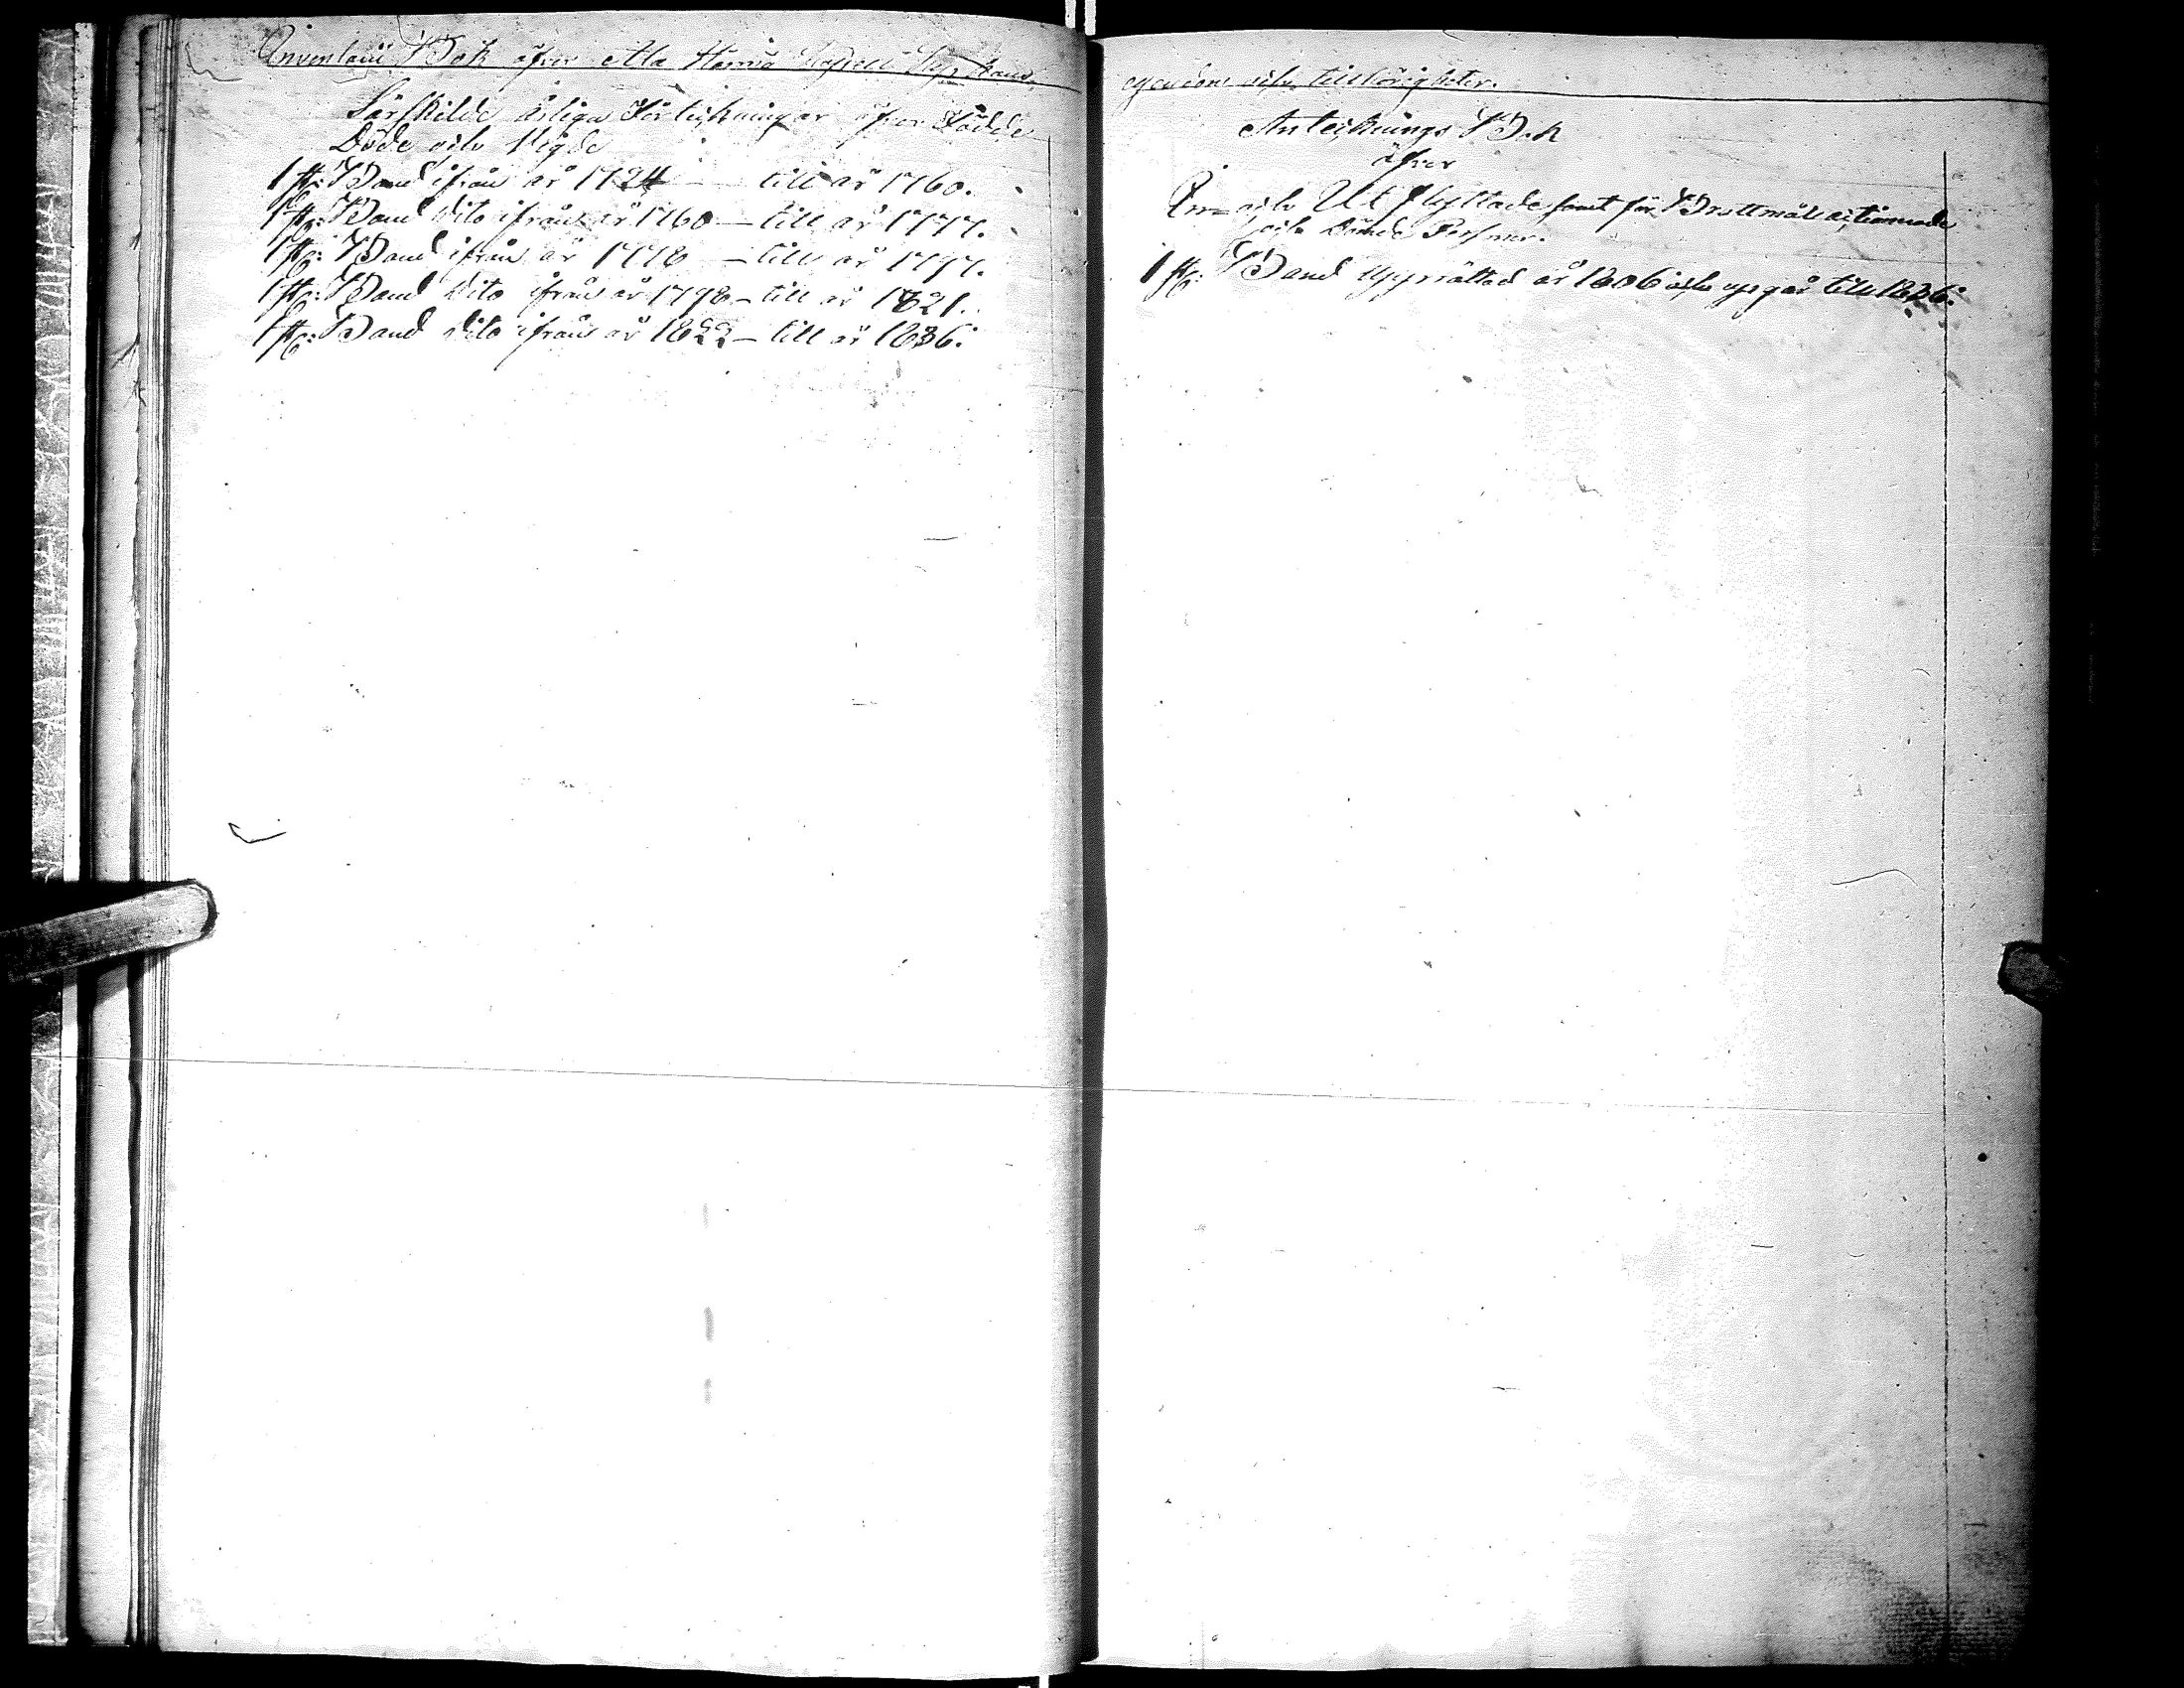 Inventarii Bok öfver Ala Härmä Capell Kyrckans
Särskilde årliga Förteckningar öfver Födde
Döde och Vigde
1 st: Band ifrån år 1724 — till år 1760.
1 st: Band dito ifrån år 1760 — till år 1777.
1 st: Band ifrån år 1778 — till år 1797.
1 st: Band dito ifrån år 1798 — till år 1821.
1 st: Band dito ifrån år 1822 — till år 1836.
egendom och tillhörigheter.
Antecknings Bok
öfver
In- och Utflyttade samt för Brottmål actionnerade
och dömde Personer.
1 st: Band Upprättad år 1806 och upgår till 1836.